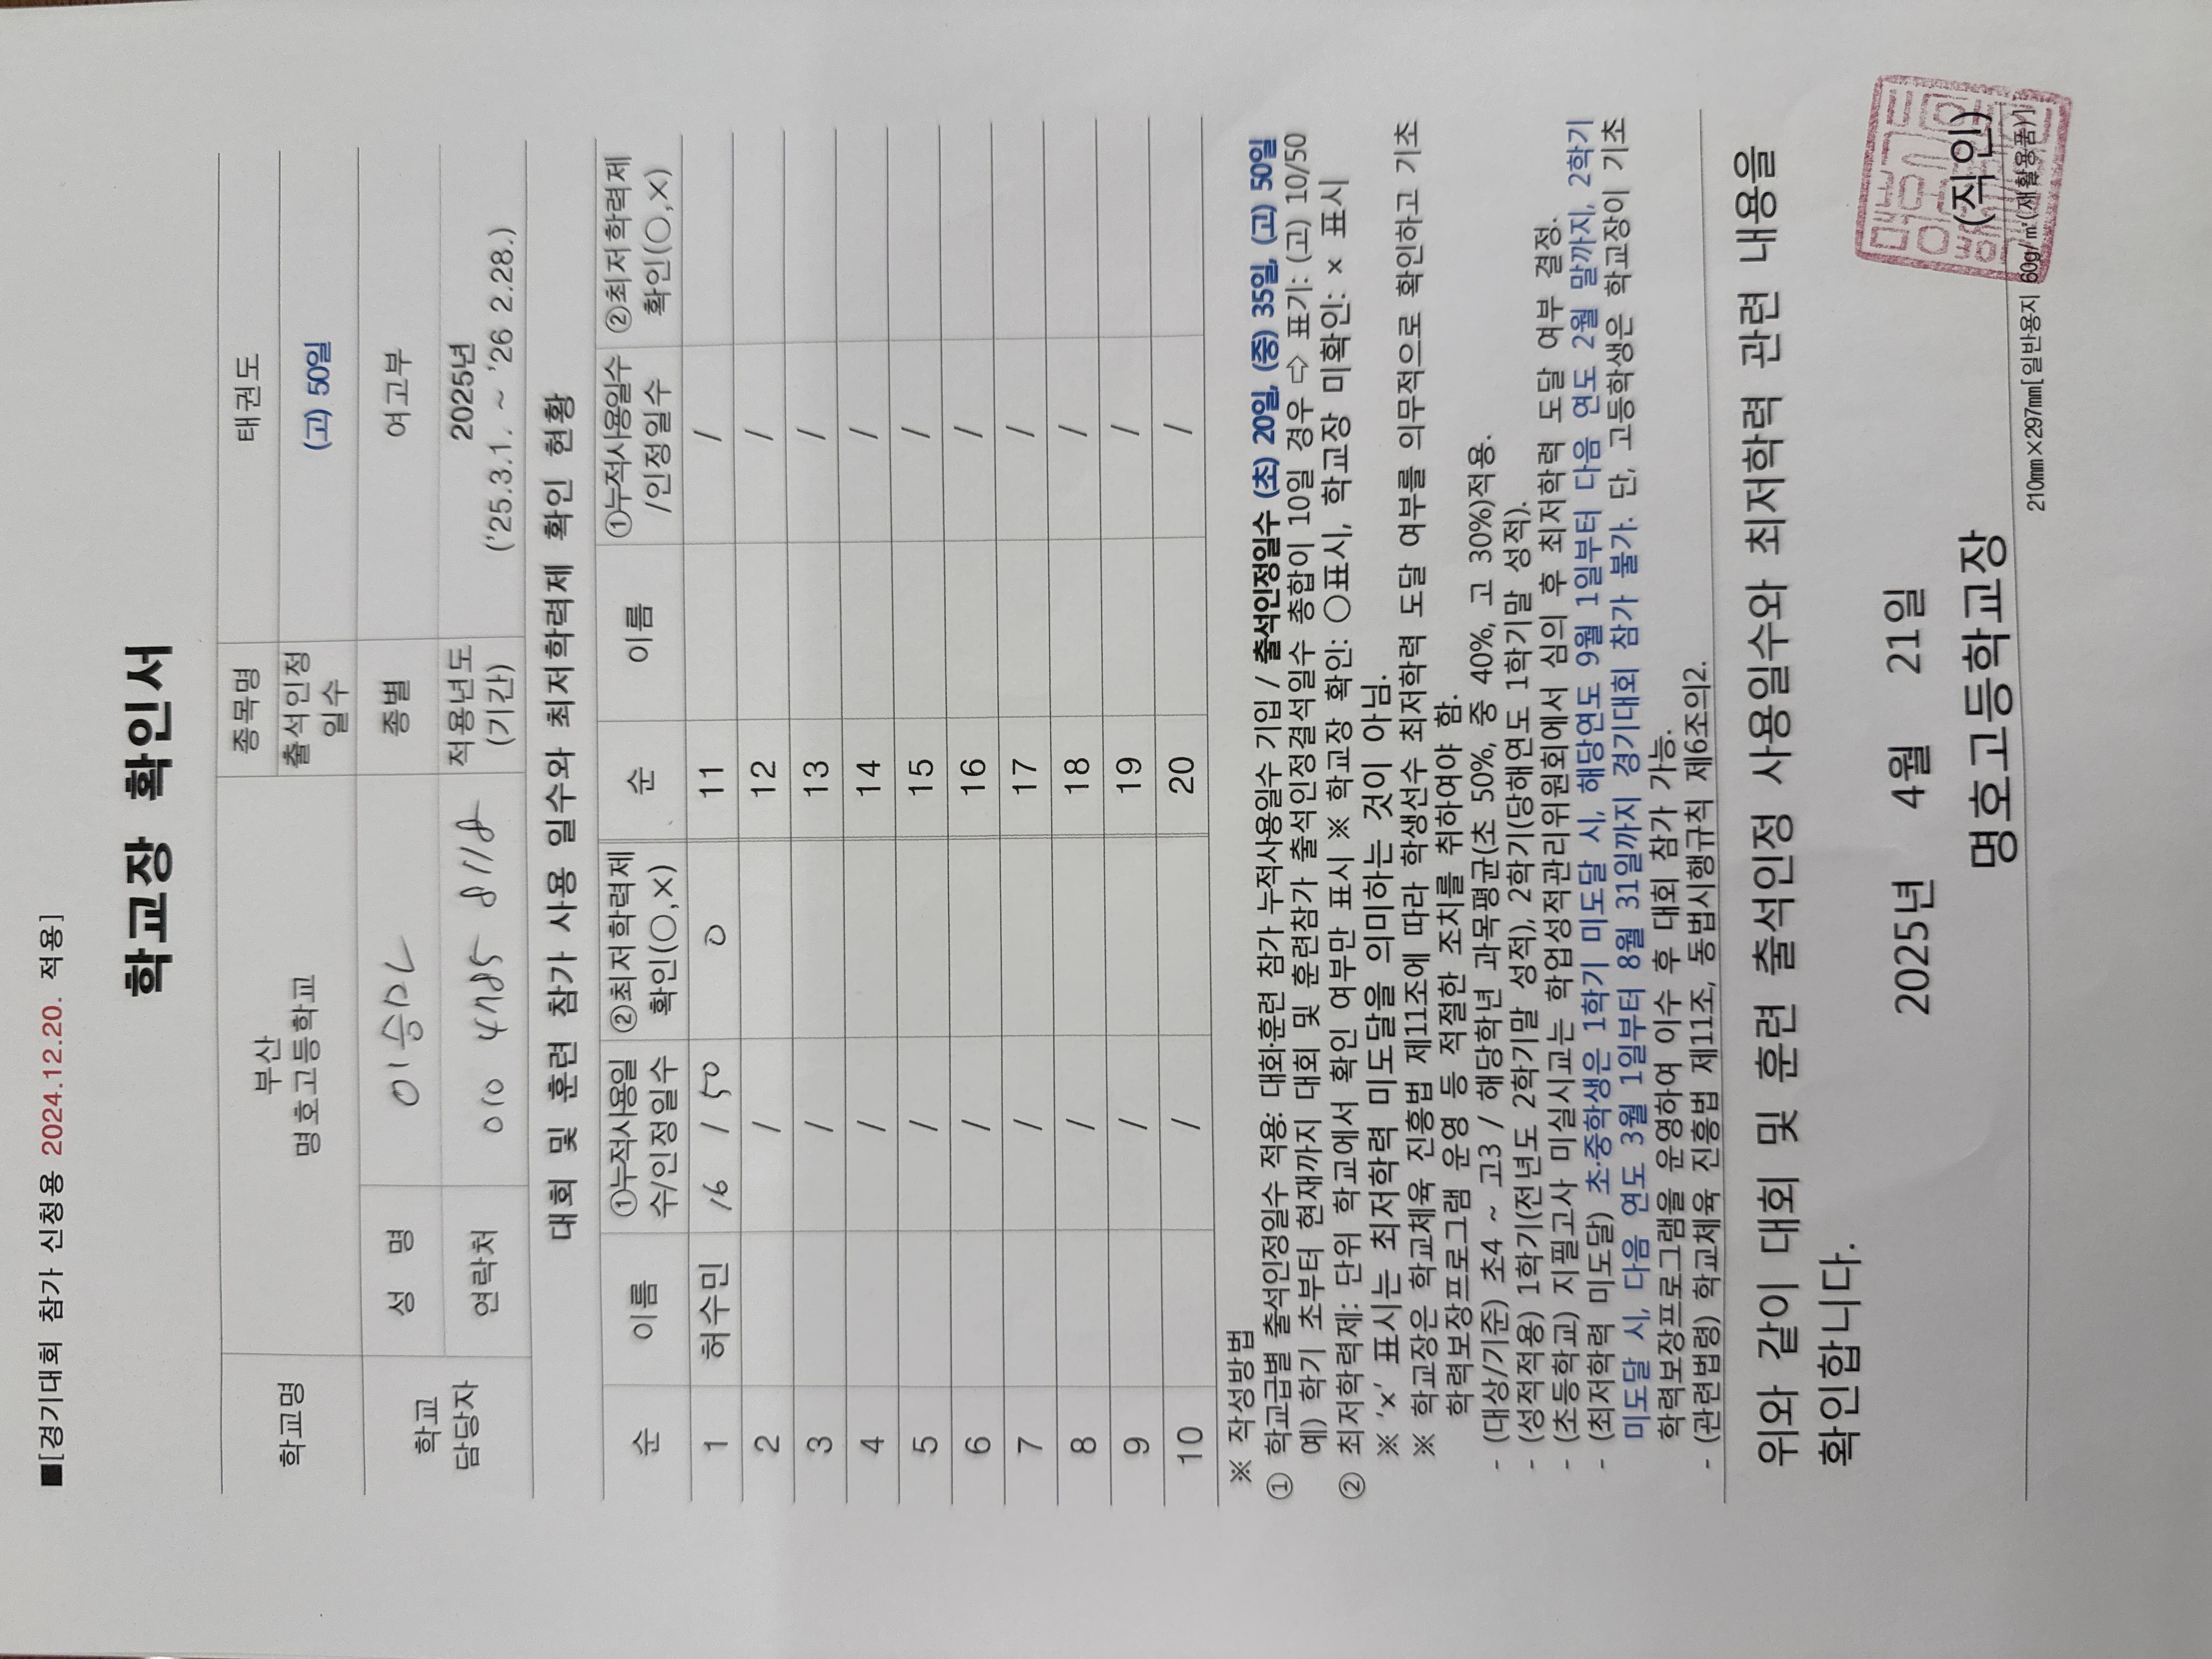 ■[경기대회 참가 신청용 2024.12.20. 적용]
학교장 확인서
학교명 부산 명호고등학교 종목명 태권도
출석인정 일수 (고) 50일
학교 담당자 성 명 종별 여고부
연락처 010 4785 8118 적용년도 (기간) 2025년 ('25.3.1. ~ '26 2.28.)
대회 및 훈련 참가 사용 일수와 최저학력제 확인 현황
순 이름 ①누적사용일수/인정일수 ②최저학력제 확인(○,×) 순 이름 ①누적사용일수/인정일수 ②최저학력제 확인(○,×)
1 허수민 16 / 50 0 11 /
2 / 12 /
3 / 13 /
4 / 14 /
5 / 15 /
6 / 16 /
7 / 17 /
8 / 18 /
9 / 19 /
10 / 20 /
※ 작성방법
① 학교급별 출석인정일수 적용: 대회·훈련 참가 누적사용일수 기입 / 출석인정일수 (초) 20일, (중) 35일, (고) 50일
예) 학기 초부터 현재까지 대회 및 훈련참가 출석인정결석일수 총합이 10일 경우 ⇨ 표기: (고) 10/50
② 최저학력제: 단위 학교에서 확인 여부만 표시 ※ 학교장 확인: ○표시, 학교장 미확인: × 표시
※ '×' 표시는 최저학력 미도달을 의미하는 것이 아님.
※ 학교장은 학교체육 진흥법 제11조에 따라 학생선수 최저학력 도달 여부를 의무적으로 확인하고 기초
학력보장프로그램 운영 등 적절한 조치를 취하여야 함.
- (대상/기준) 초4 ~ 고3 / 해당학년 과목평균(초 50%, 중 40%, 고 30%)적용.
- (성적적용) 1학기(전년도 2학기말 성적), 2학기(당해연도 1학기말 성적).
- (초등학교) 지필고사 미실시교는 학업성적관리위원회에서 심의 후 최저학력 도달 여부 결정.
- (최저학력 미도달) 초·중학생은 1학기 미도달 시, 해당연도 9월 1일부터 다음 연도 2월 말까지, 2학기
미도달 시, 다음 연도 3월 1일부터 8월 31일까지 경기대회 참가 불가. 단, 고등학생은 학교장이 기초
학력보장프로그램을 운영하여 이수 후 대회 참가 가능.
- (관련법령) 학교체육 진흥법 제11조, 동법시행규칙 제6조의2.
위와 같이 대회 및 훈련 출석인정 사용일수와 최저학력 관련 내용을
확인합니다.
2025년 4월 21일
명호고등학교장 (직인)
210㎜×297㎜[일반용지 60g/㎡(재활용품)]